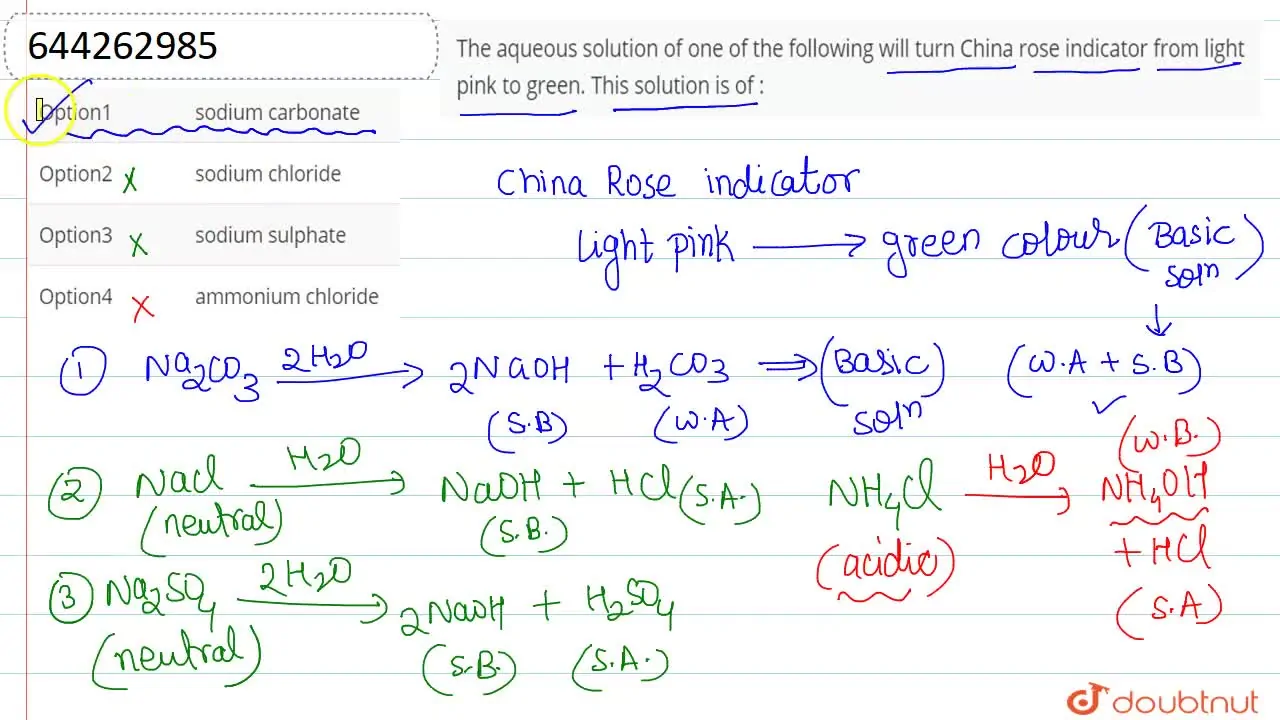 644262985
The aqueous solution of one of the following will turn China rose indicator from light
pink to green. This solution is of :
Option1 sodium carbonate
Option2 X sodium chloride
Option3 X sodium sulphate
Option4 X ammonium chloride
China Rose indicator
light pink → green colour (Basic soln)
① Na2CO3 2H2O → 2NaOH + H2CO3 ⇒ (Basic soln) (W.A + S.B)
(S.B) (W.A)
② NaCl H2O → NaOH + HCl (S.A.)
(neutral) (S.B.)
NH4Cl H2O → NH4OH (W.B.)
(acidic) + HCl
(S.A)
③ Na2SO4 2H2O → 2NaOH + H2SO4
(neutral) (S.B.) (S.A.)
doubtnut